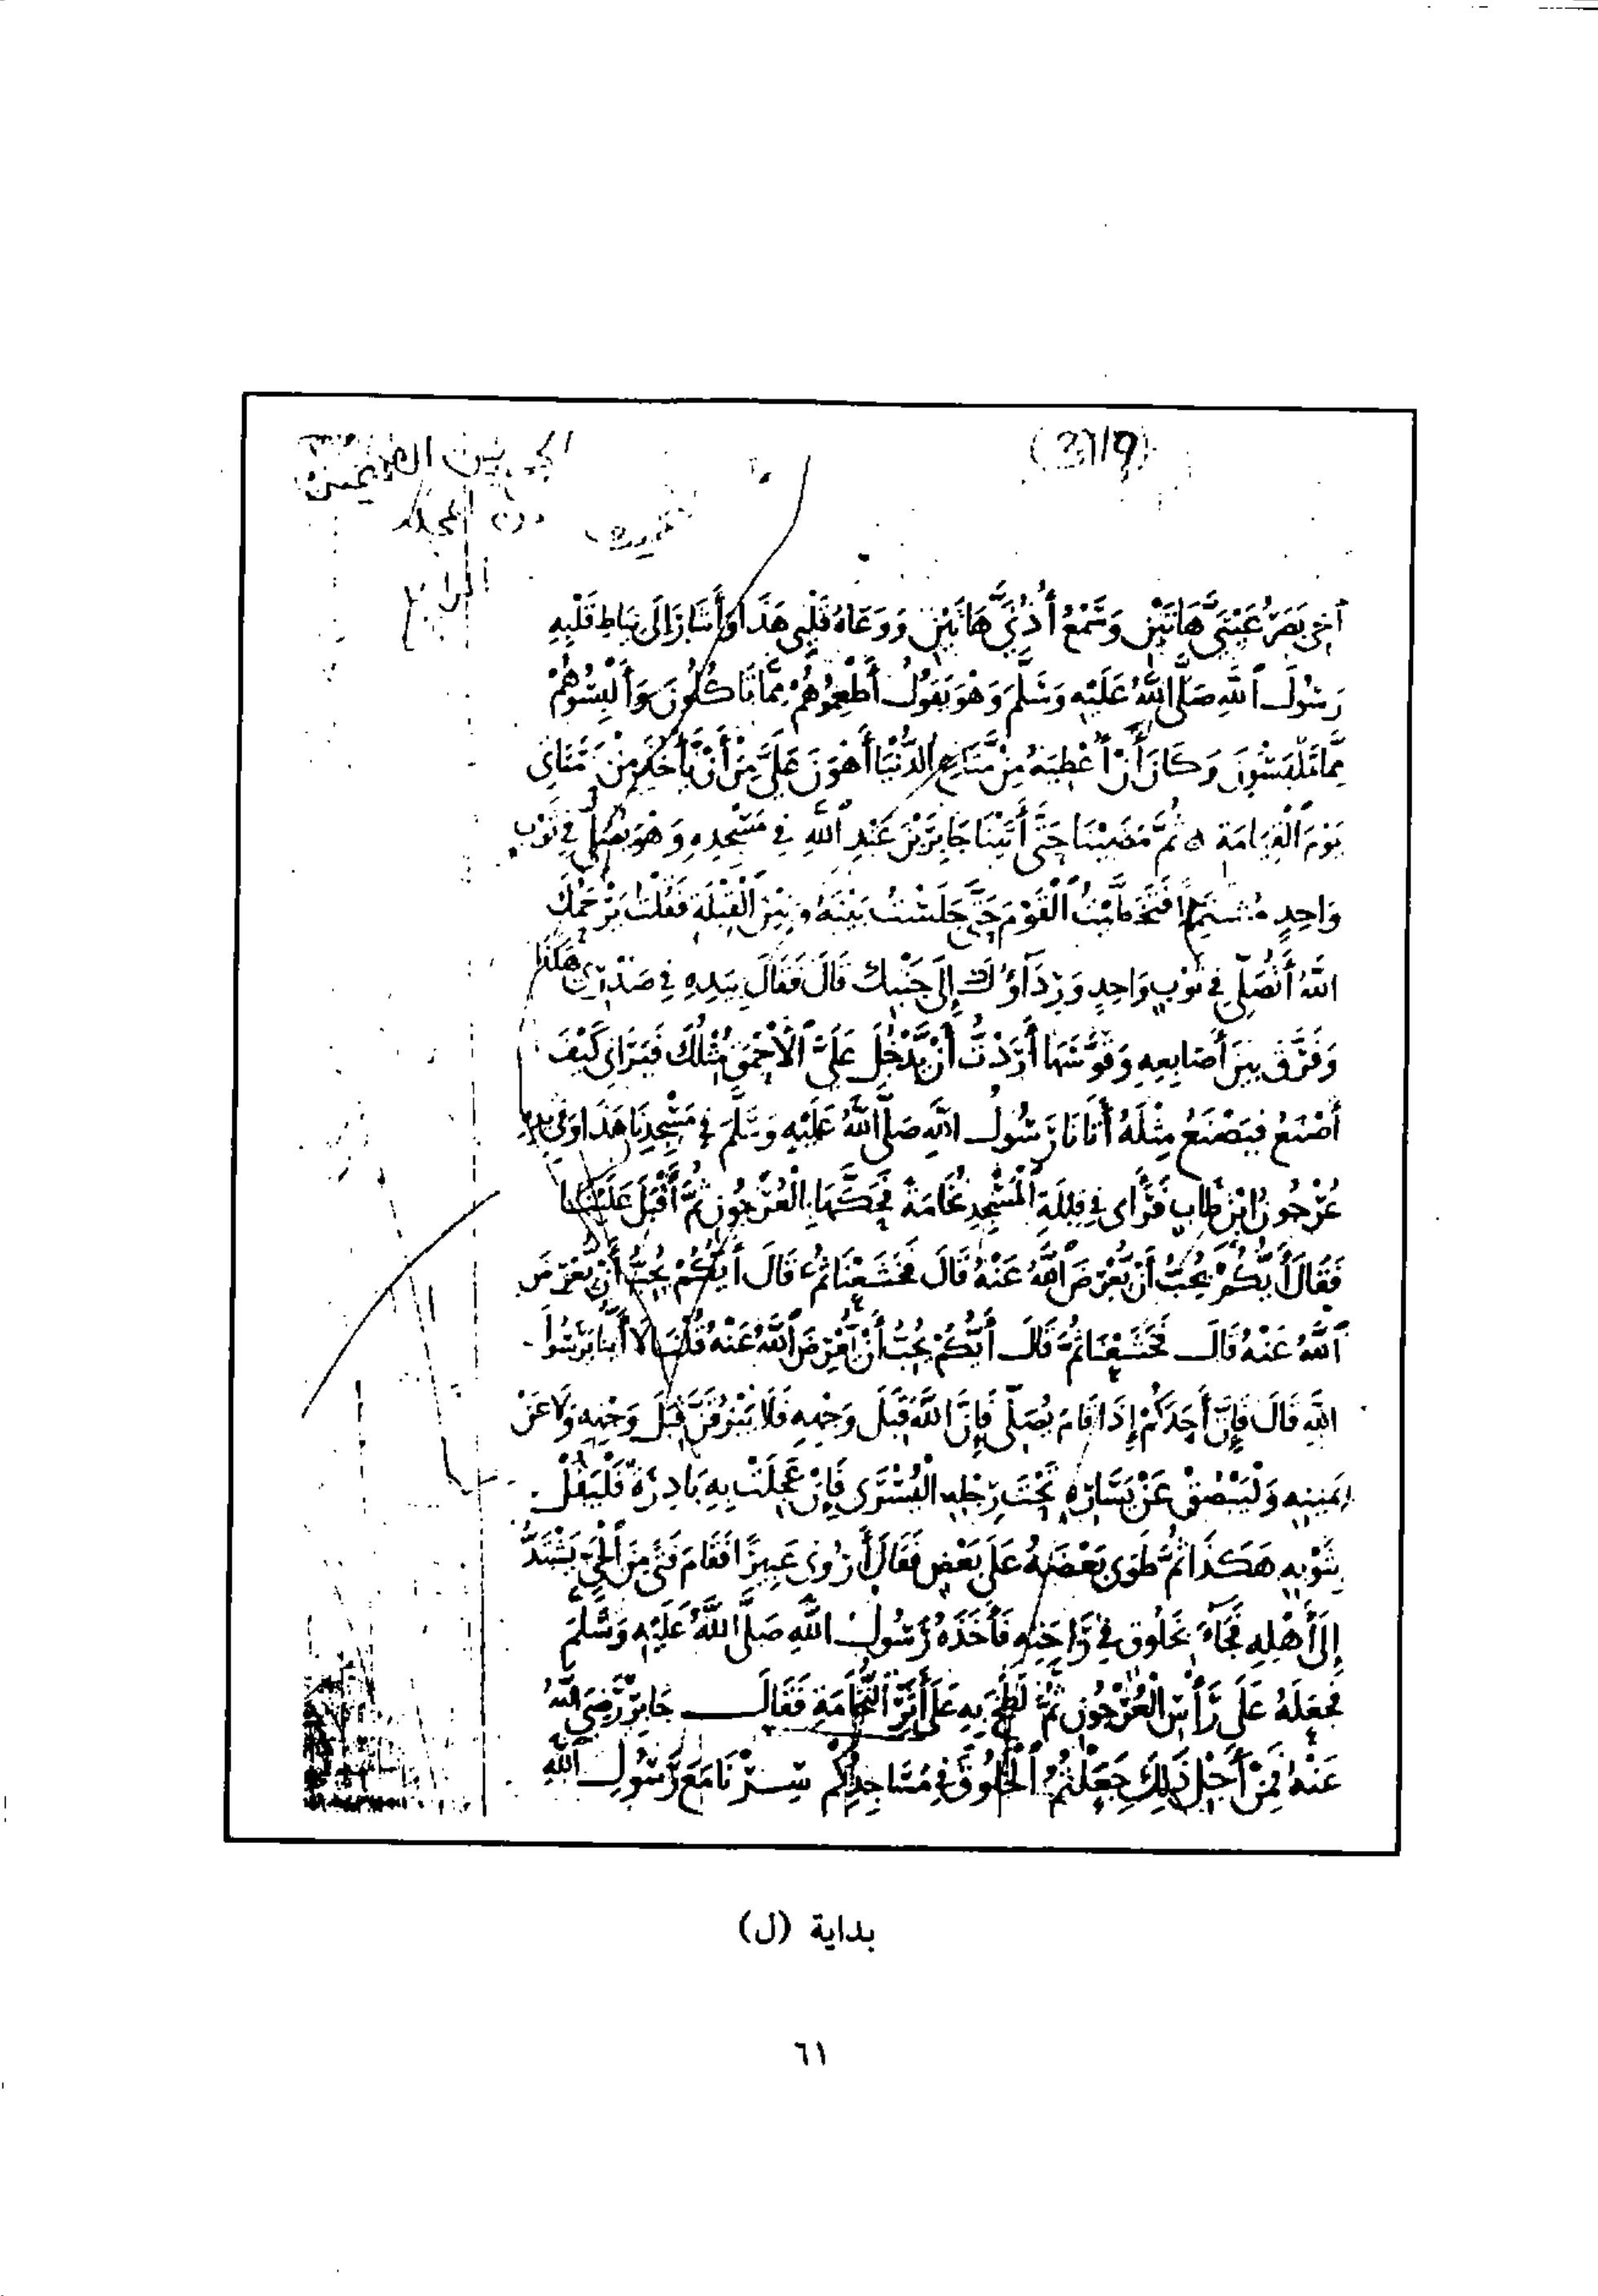 (3719)
الجمع بين الصحيحين
من المجلد
الرابع
أخي بَصَرُ عَيْنَيَّ هَاتَيْنِ وَسَمْعُ أُذُنَيَّ هَاتَيْنِ وَوَعَاهُ قَلْبِي هَذَا وَأَشَارَ إِلَى نِيَاطِ قَلْبِهِ
رَسُولَ اللَّهِ صَلَّى اللَّهُ عَلَيْهِ وَسَلَّمَ وَهُوَ يَقُولُ أَطْعِمُوهُمْ مِمَّا تَأكُلُونَ وَأَلْبِسُوهُمْ
مِمَّا تَلْبَسُونَ وَكَانَ أَنْ أُعْطِيَهُ مِنْ مَتَاعِ الدُّنْيَا أَهْوَنَ عَلَيَّ مِنْ أَنْ يَأْخُذَ مِنْ حَسَنَاتِي
يَوْمَ الْقِيَامَةِ ثُمَّ مَضَيْنَا حَتَّى أَتَيْنَا جَابِرَ بْنَ عَبْدِ اللَّهِ فِي مَسْجِدِهِ وَهُوَ يُصَلِّي فِي ثَوْبٍ
وَاحِدٍ مُشْتَمِلًا فَتَخَطَّيْتُ الْقَوْمَ حَتَّى جَلَسْتُ بَيْنَهُ وَبَيْنَ الْقِبْلَةِ فَقُلْتُ يَرْحَمُكَ
اللَّهُ أَتُصَلِّي فِي ثَوْبٍ وَاحِدٍ وَرِدَآؤُكَ إِلَى جَنْبِكَ قَالَ فَقَالَ بِيَدِهِ فِي صَدْرِي هَكَذَا
وَفَرَّقَ بَيْنَ أَصَابِعِهِ وَقَوَّسَهَا أَرَدْتُ أَنْ يَدْخُلَ عَلَيَّ الْأَحْمَقُ مِثْلُكَ فَيَرَانِي كَيْفَ
أَصْنَعُ فَيَصْنَعُ مِثْلَهُ أَتَانَا رَسُولُ اللَّهِ صَلَّى اللَّهُ عَلَيْهِ وَسَلَّمَ فِي مَسْجِدِنَا هَذَا وَفِي يَدِهِ
عُرْجُونُ ابْنِ طَابٍ فَرَأَى فِي قِبْلَةِ الْمَسْجِدِ نُخَامَةً فَحَكَّهَا بِالْعُرْجُونِ ثُمَّ أَقْبَلَ عَلَيْنَا
فَقَالَ أَيُّكُمْ يُحِبُّ أَنْ يُعْرِضَ اللَّهُ عَنْهُ قَالَ فَخَشَعْنَا ثُمَّ قَالَ أَيُّكُمْ يُحِبُّ أَنْ يُعْرِضَ
اللَّهُ عَنْهُ قَالَ فَخَشَعْنَا ثُمَّ قَالَ أَيُّكُمْ يُحِبُّ أَنْ يُعْرِضَ اللَّهُ عَنْهُ قُلْنَا لَا أَيُّنَا يَرَسُولَ
اللَّهِ قَالَ فَإِنَّ أَحَدَكُمْ إِذَا قَامَ يُصَلِّي فَإِنَّ اللَّهَ قِبَلَ وَجْهِهِ فَلَا يَبْزُقَنَّ قِبَلَ وَجْهِهِ وَلَا عَنْ
يَمِينِهِ وَلْيَبْصُقْ عَنْ يَسَارِهِ تَحْتَ رِجْلِهِ الْيُسْرَى فَإِنْ عَجِلَتْ بِهِ بَادِرَةٌ فَلْيَقُلْ
بِثَوْبِهِ هَكَذَا ثُمَّ طَوَى بَعْضَهُ عَلَى بَعْضٍ فَقَالَ أَرُونِي عَبِيرًا فَقَامَ فَتًى مِنَ الْحَيِّ يَشْتَدُّ
إِلَى أَهْلِهِ فَجَآءَ بِخَلُوقٍ فِي رَاحَتِهِ فَأَخَذَهُ رَسُولُ اللَّهِ صَلَّى اللَّهُ عَلَيْهِ وَسَلَّمَ
فَجَعَلَهُ عَلَى رَأْسِ الْعُرْجُونِ ثُمَّ لَطَخَ بِهِ عَلَى أَثَرِ النُّخَامَةِ فَقَالَ جَابِرٌ رَضِيَ اللَّهُ
عَنْهُ فَمِنْ أَجْلِ ذَلِكَ جَعَلْتُمُ الْخَلُوقَ فِي مَسَاجِدِكُمْ سِرْنَا مَعَ رَسُولِ اللَّهِ
بداية (ل)
٦١